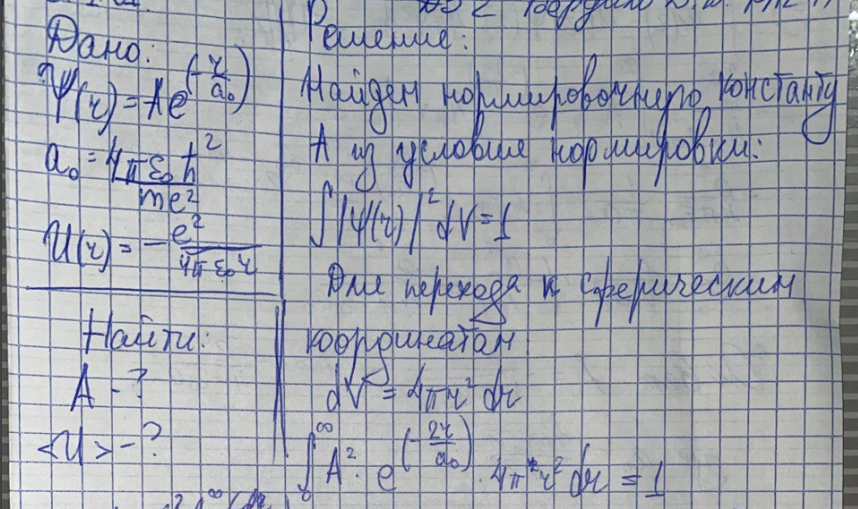 Дано:
Ψ(r) = A e^(-r/a₀)
a₀ = 4πε₀ħ²/me²
U(r) = - e²/4πε₀r
Найти:
A - ?
<U> - ?
Решение:
Найдем нормировочную константу
A из условие нормировки:
∫|Ψ(r)|² dV = 1
Для перехода к сферическим
координатам
dV = 4πr² dr
∫₀^∞ A² · e^(-2r/a₀) · 4πr² dr = 1